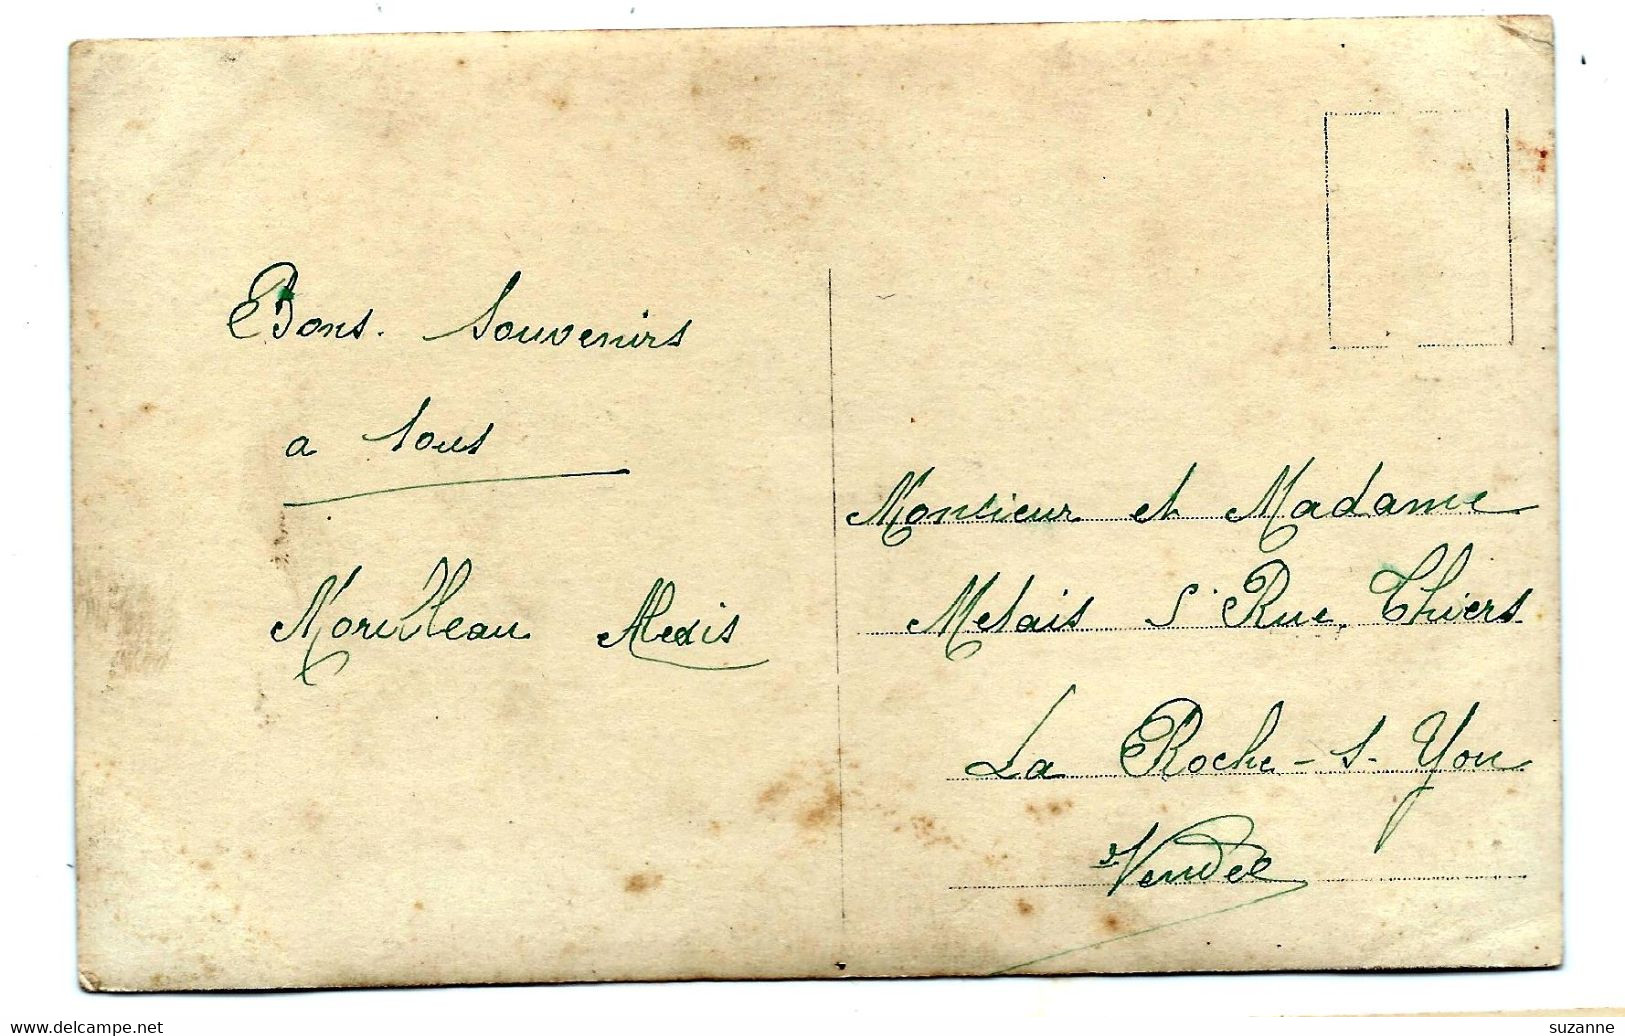 Bons. Souvenirs
a tous
Morilleau Alexis
Monsieur et Madame
Metais 5 Rue Thiers
La Roche-s-Yon
Vendée
www.delcampe.net
suzanne